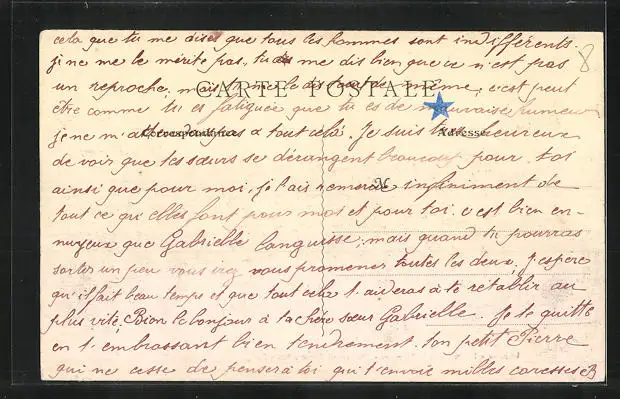 cela que tu me dises que tous les hommes sont indifférents.
je ne me le mérite pas, tu me dis bien que ce n'est pas
un reproche, mais tu me le dis tout de même, c'est peut
CARTE POSTALE
8
être comme tu es fatiguée que tu es de mauvaise humeur
je ne m'attendais pas à tout cela. Je suis très heureux
Correspondance
Adresse
de voir que tes sœurs se dérangent beaucoup pour toi
ainsi que pour moi, je l'ais remercie infiniment de
M
tout ce qu'elles font pour moi et pour toi. c'est bien en-
nuyeux que Gabrielle languisse, mais quand tu pourras
sortir un peu vous irez vous promener toutes les deux, j'espère
qu'il fait beau temps et que tout cela t'aideras à te rétablir au
plus vite, Bien le bonjour à ta chère sœur Gabrielle. Je te quitte
en t'embrassant bien tendrement. ton petit Pierre
qui ne cesse de penser à toi qui t'envoie milles caresses